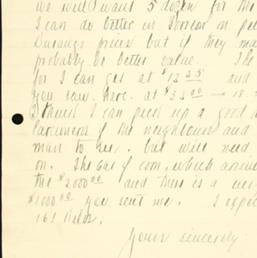 we will want 5 dozen for the
I can do better in Boston on
Durango prices but if they
probably be better value. The
for I can get at $13 25 and
you saw here at $33 00
I think I can pick up a good
of the neighbours and
man to see, but will need
on. The Car of corn, which
the $2000 00 and there is a
$1000 00 you sent me. I
161
Yours sincerely